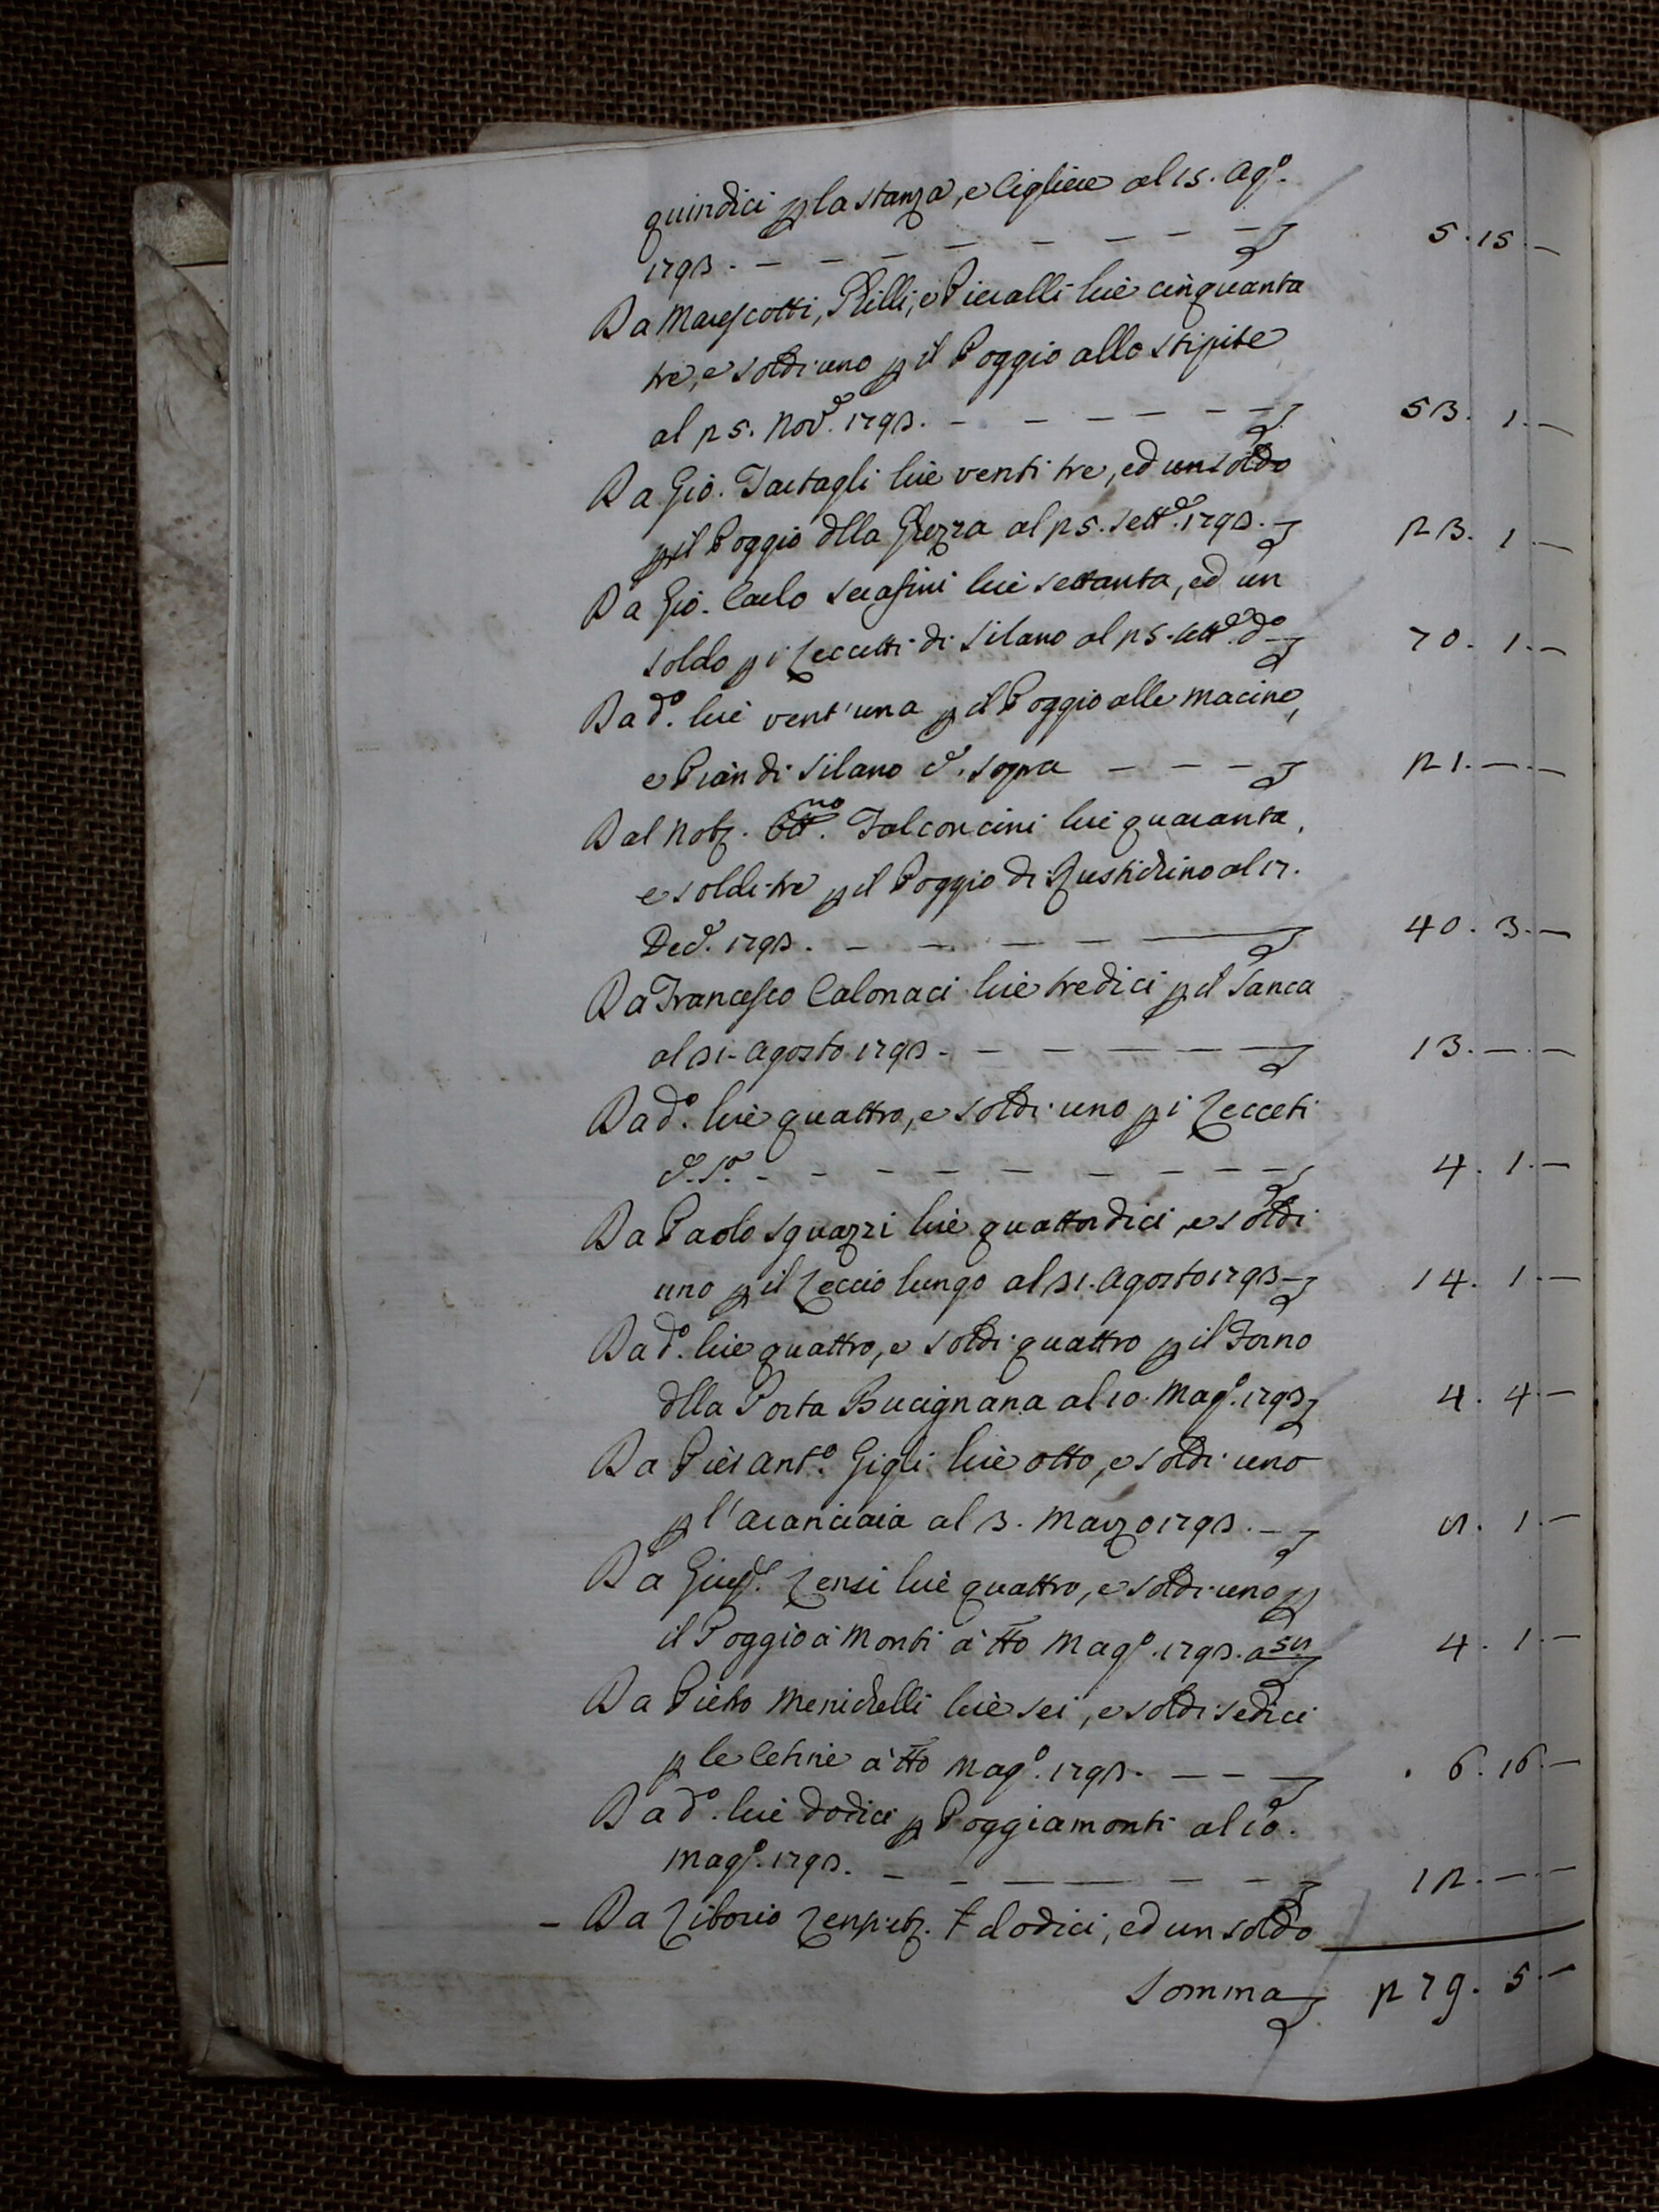 quindici p la stanza, e Cigliere al 15. Ag.o
1793. – – – – – – – – 5. 15 –
Da Marescotti, Rilli, e Pieralli lire cinquanta
tre, e soldi uno p il Poggio allo stipite
al 25. Nov.e 1793. – – – – – – 53. 1. –
Da Gio. Tartagli lire venti tre, ed un soldo
p il Poggio dlla Ghezza al 25. Sett.e 1793. – 23. 1 –
Da Gio. Carlo Serafini lire settanta, ed un
soldo p i Leccetti di Silano al 25. Sett.e d.o – 70. 1. –
Da d.o lire vent'una p il Poggio alle Macine,
e Pian di Silano d. sopra – – – – 21. – . –
Dal Nob. Falconcini lire quaranta,
e soldi tre p il Poggio di al 17.
Dec.e 1793. – – – – – 40. 3. –
Da Francesco Calonaci lire tredici p il Sanca
al 31. Agosto 1793. – – – – – – 13. – . –
Da d.o lire quattro, e soldi uno p i Lecceti
d. S.a – – – – – – – – – 4. 1. –
Da Paolo Sguazzi lire quattordici, e soldi
uno p il Leccio lungo al 31. Agosto 1793 – 14. 1. –
Da d.o lire quattro, e soldi quattro p il Forno
dlla Porta Bucignana al 10. Mag.o 1793 4. 4. –
Da Pier Ant.o Gigli lire otto, e soldi uno
p l'aranciaia al 3. Marzo 1793. – – 8. 1. –
Da Gius.e Lensi lire quattro, e soldi uno p
il Poggio a' Monti a tto Mag.o 1793. a 58 4. 1 –
Da Pietro Menichelli lire sei, e soldi sedici
p le Cetine a tto Mag.o 1793. – – – 6. 16. –
Da d.o lire dodici p Poggiamonti al 10.
Mag.o 1793. – – – – – – 12. – –
– Da Liborio ₶ dodici, ed un soldo
Somma 279. 5. –